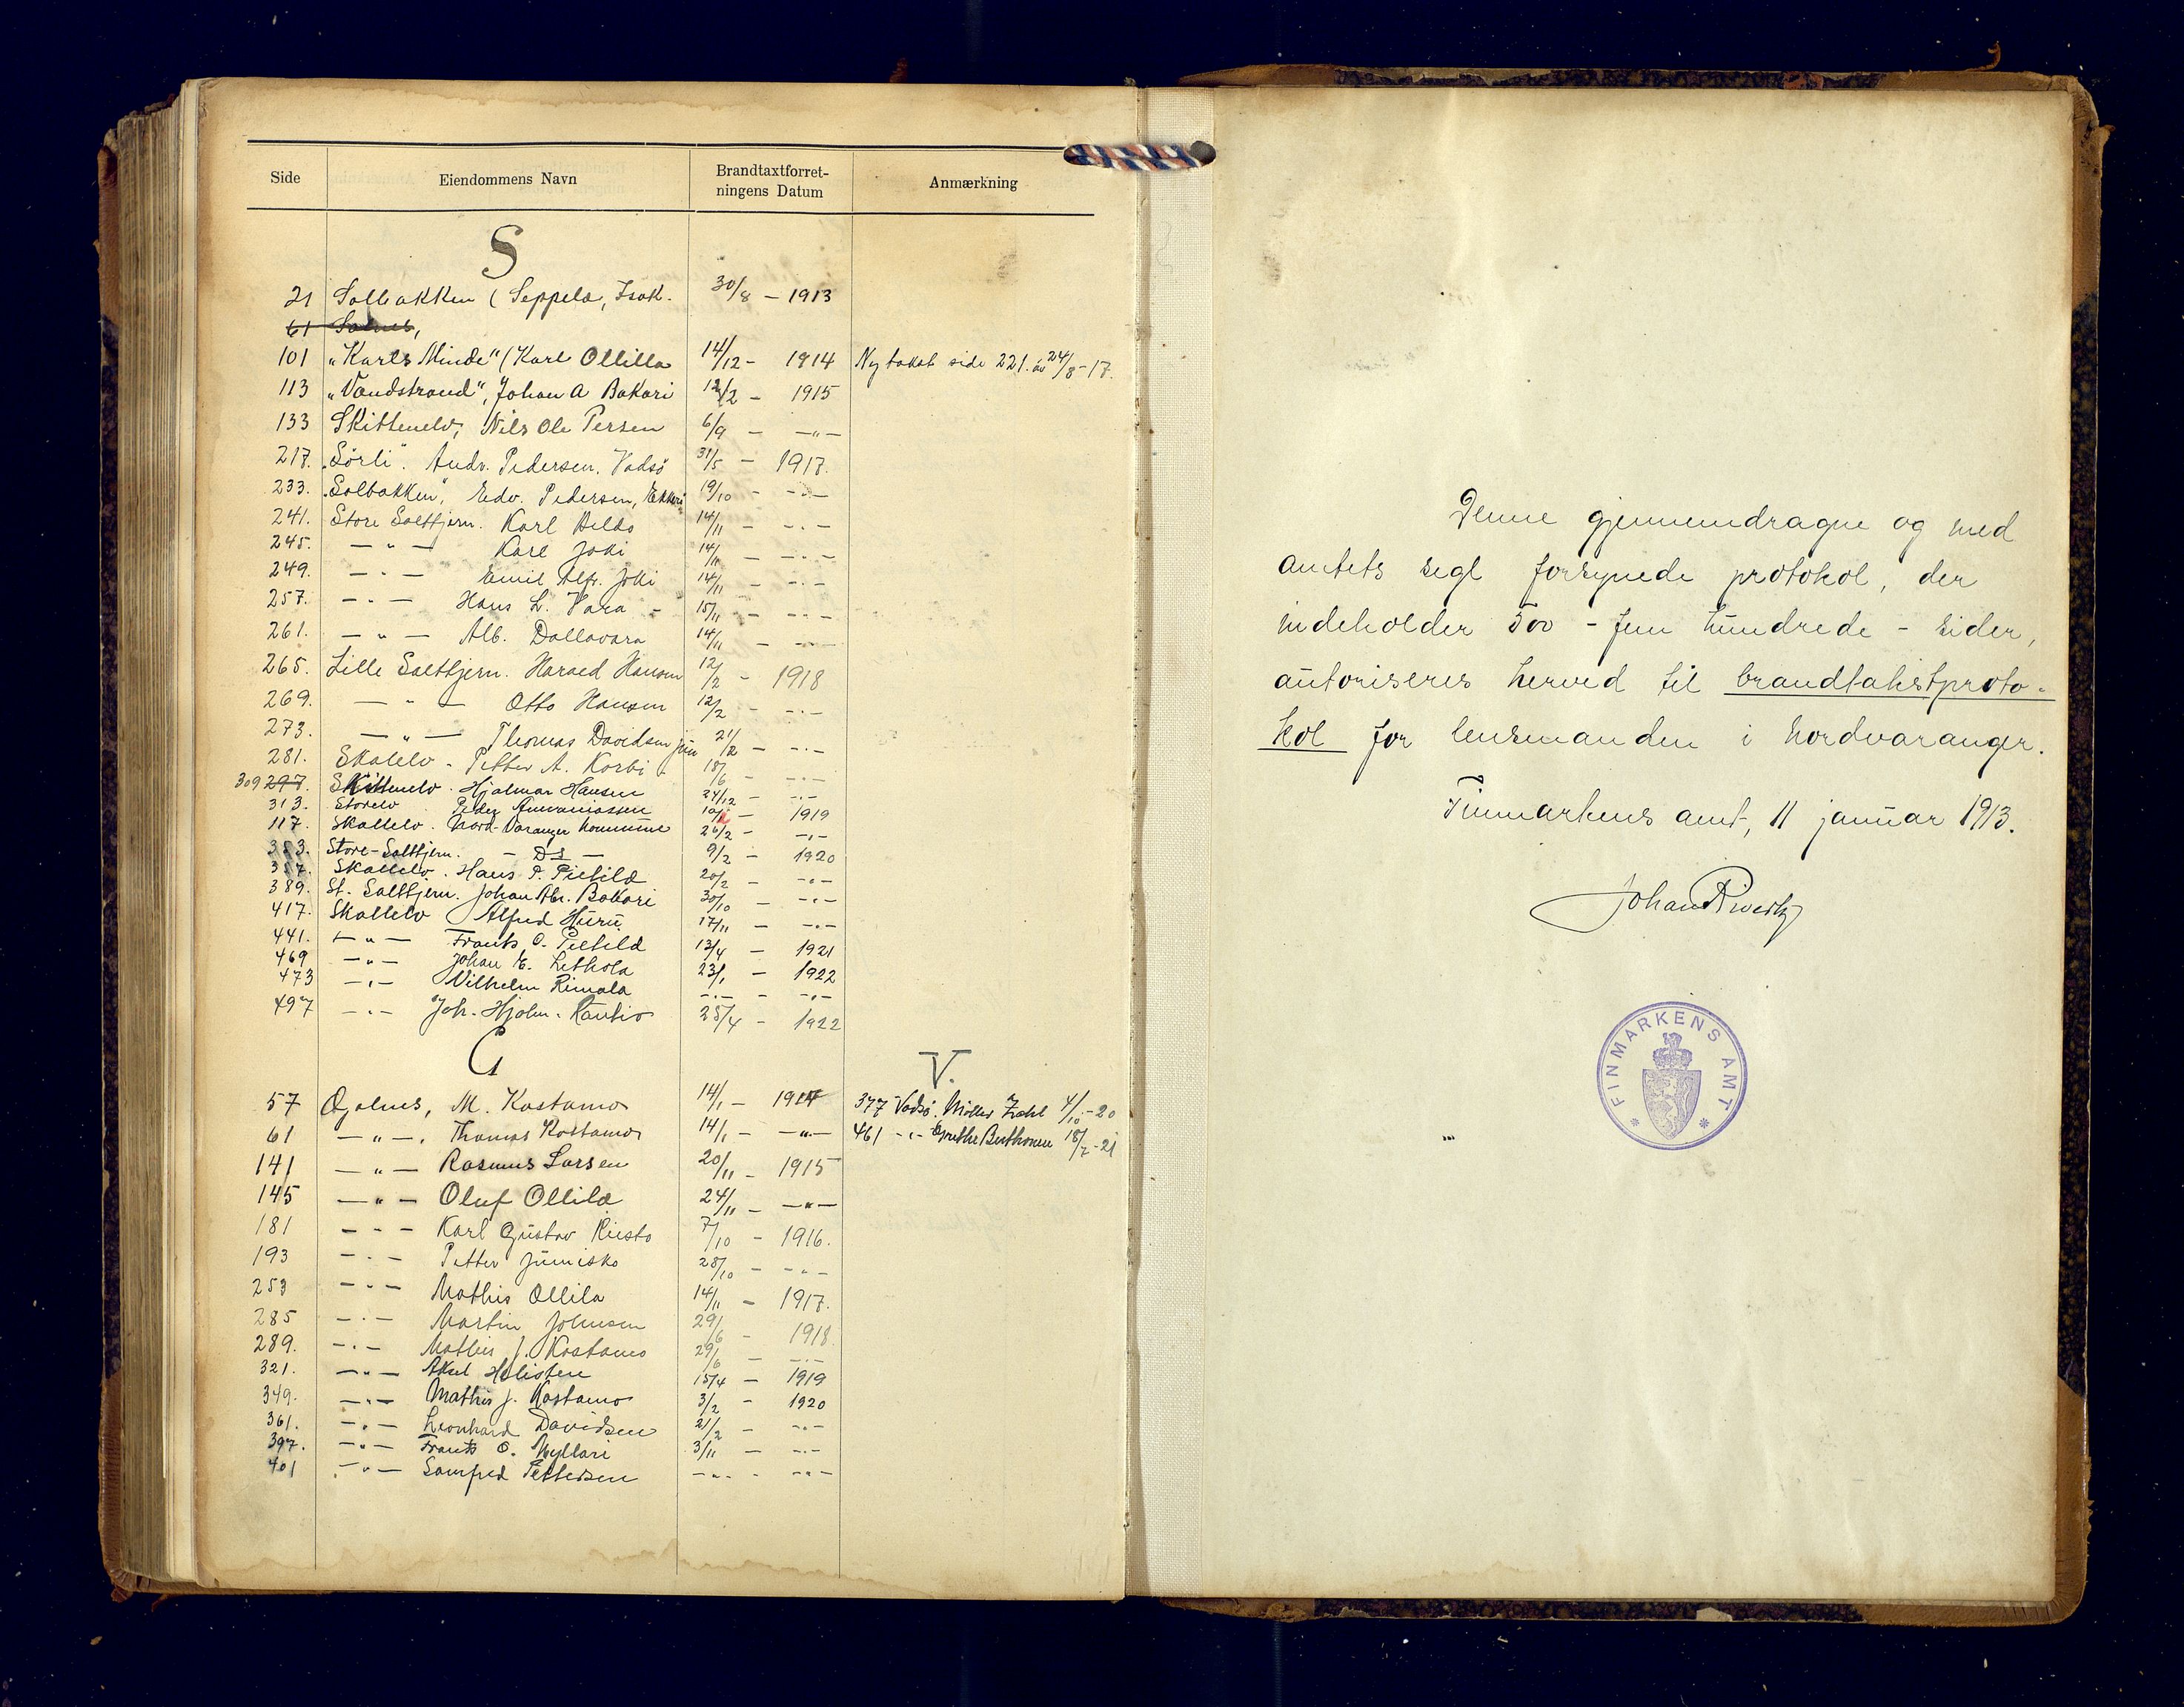 Side Eiendommens Navn Brandtaxtforret-ningens Datum Anmærkning
S
21 Solbakken (Seppela, Isak. 30/8 - 1913
61 Salnes,
101 „Karls Minde" (Karl Ollilla 14/12 - 1914 Ny takst side 221. av 24/8-17.
113 „Vandstrand", Johan A Bakari 12/2 - 1915
133 Skittenelv, Nils Ole Persen 6/9 - -"-
217. „Sörli". Andr. Pedersen. Vadsö 31/5 - 1917.
233. „Solbakken", Edv. Pedersen, Ekkerö 19/10 - -"-
241. Store Saltfjern. Karl 14/11 - -"-
245. -"- Karl Joki 14/11 - -"-
249. -"- Emil Alfr. Joki 14/11 - -"-
257. -"- Hans L. Vara - 15/11 - -"-
261. -"- Alb. Dallavara 14/11 - -"-
265. Lille Saltfjern. Harald Hansen 12/2 - 1918
269. -"- Otto Hansen 12/2 - -"-
273. -"- Thomas Davidsen jun 21/2 - -"-
281. Skalelv - Petter A. Korbi 18/6 - -"-
309 297. Skittenelv. Hjalmar Hansen 24/12 - -"-
313. Storelv Peder 10/ - 1919
117. Skallelv. Nord-Varanger kommune 26/2 - -"-
353. Store-Saltfjern. - Do - 9/2 - 1920
357. Skallelv. Hans P. Pietilä 20/2 - -"-
389. St. Saltfjern. Johan Abr. Bakari 30/10 - -"-
417. Skallelv Alfred Huru 17/11 - -"-
441. -"- Frants O. Pietilä 13/4 - 1921
469 -"- Johan E. Lethola 23/1 - 1922
473 -"- Vilhelm Rimala -"- - -"-
497 -"- Joh. Hjalm. Rautio 25/4 - 1922
G V.
57 Gjalnes, M. Kostamo 14/1 - 1914 377 Vadsö. Möller Zahl 4/10-20
61 -"-, Thomas Kostamo 14/1 - -"- 461 -"- Grethe Berthonen 18/7-21
141 -"- Rasmus Larsen 20/11 - 1915
145 -"- Oluf Ollila 24/11 - -"-
181 -"- Karl Gustav Riesto 7/10 - 1916.
193 -"- Petter Jumisko 28/10 - -"-
253 -"- Mathis Ollila 14/11 - 1917.
285 -"- Martin Johnsen 29/6 - 1918
289. -"- Mathis J. Kostamo 29/6 - -"-
321. -"- Aksel Halisten 15/4 - 1919
349. -"- Mathis J. Kostamo 3/2 - 1920
361. -"- Leonhard Davidsen 21/2 - -"-
397. -"- Frants O. Myllari 3/11 - -"-
401 -"- Samfred Pettersen -"- - -"-
Denne gjennemdragne og med
amtets segl forsynede protokol, der
indeholder 500 - fem hundrede - sider,
autoriseres herved til brandtakstproto-
kol for lensmanden i Nordvaranger.
Finmarkens amt, 11 januar 1913.
Johan Rivertz
FINMARKENS AMT